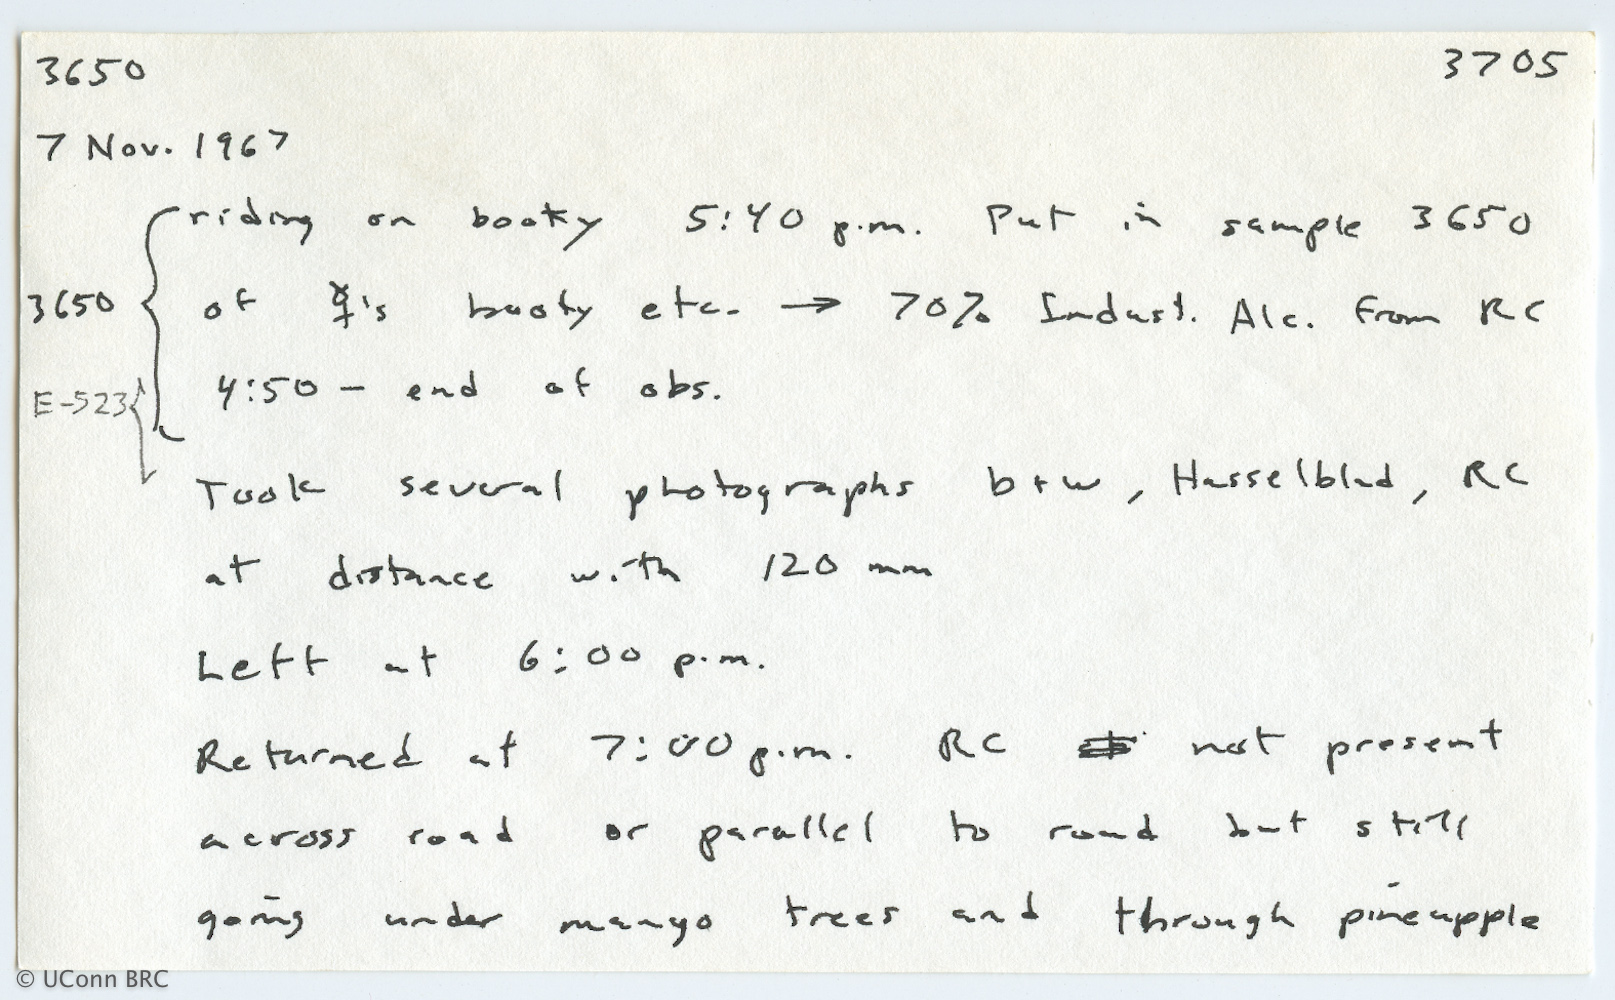 3650 3705
7 Nov. 1967
riding on booty 5:40 p.m. Put in sample 3650
3650 of ☿'s booty etc. → 70% Indust. Alc. from RC
4:50 – end of obs.
E-523
Took several photographs b+w, Hasselblad, RC
at distance with 120 mm
Left at 6:00 p.m.
Returned at 7:00 p.m. RC not present
across road or parallel to road but still
going under mango trees and through pineapple
© UConn BRC